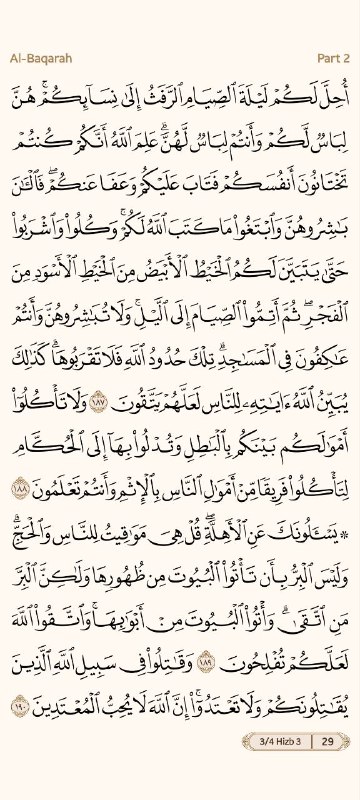 Al-Baqarah
Part 2
أُحِلَّ لَكُمۡ لَيۡلَةَ ٱلصِّيَامِ ٱلرَّفَثُ إِلَىٰ نِسَآئِكُمۡۚ هُنَّ
لِبَاسٞ لَّكُمۡ وَأَنتُمۡ لِبَاسٞ لَّهُنَّۗ عَلِمَ ٱللَّهُ أَنَّكُمۡ كُنتُمۡ
تَخۡتَانُونَ أَنفُسَكُمۡ فَتَابَ عَلَيۡكُمۡ وَعَفَا عَنكُمۡۖ فَٱلۡـَٰٔنَ
بَٰشِرُوهُنَّ وَٱبۡتَغُواْ مَا كَتَبَ ٱللَّهُ لَكُمۡۚ وَكُلُواْ وَٱشۡرَبُواْ
حَتَّىٰ يَتَبَيَّنَ لَكُمُ ٱلۡخَيۡطُ ٱلۡأَبۡيَضُ مِنَ ٱلۡخَيۡطِ ٱلۡأَسۡوَدِ مِنَ
ٱلۡفَجۡرِۖ ثُمَّ أَتِمُّواْ ٱلصِّيَامَ إِلَى ٱلَّيۡلِۚ وَلَا تُبَٰشِرُوهُنَّ وَأَنتُمۡ
عَٰكِفُونَ فِي ٱلۡمَسَٰجِدِۗ تِلۡكَ حُدُودُ ٱللَّهِ فَلَا تَقۡرَبُوهَاۗ كَذَٰلِكَ
يُبَيِّنُ ٱللَّهُ ءَايَٰتِهِۦ لِلنَّاسِ لَعَلَّهُمۡ يَتَّقُونَ ١٨٧ وَلَا تَأۡكُلُوٓاْ
أَمۡوَٰلَكُم بَيۡنَكُم بِٱلۡبَٰطِلِ وَتُدۡلُواْ بِهَآ إِلَى ٱلۡحُكَّامِ
لِتَأۡكُلُواْ فَرِيقٗا مِّنۡ أَمۡوَٰلِ ٱلنَّاسِ بِٱلۡإِثۡمِ وَأَنتُمۡ تَعۡلَمُونَ ١٨٨
۞ يَسۡـَٔلُونَكَ عَنِ ٱلۡأَهِلَّةِۖ قُلۡ هِيَ مَوَٰقِيتُ لِلنَّاسِ وَٱلۡحَجِّۗ
وَلَيۡسَ ٱلۡبِرُّ بِأَن تَأۡتُواْ ٱلۡبُيُوتَ مِن ظُهُورِهَا وَلَٰكِنَّ ٱلۡبِرَّ
مَنِ ٱتَّقَىٰۗ وَأۡتُواْ ٱلۡبُيُوتَ مِنۡ أَبۡوَٰبِهَاۚ وَٱتَّقُواْ ٱللَّهَ
لَعَلَّكُمۡ تُفۡلِحُونَ ١٨٩ وَقَٰتِلُواْ فِي سَبِيلِ ٱللَّهِ ٱلَّذِينَ
يُقَٰتِلُونَكُمۡ وَلَا تَعۡتَدُوٓاْۚ إِنَّ ٱللَّهَ لَا يُحِبُّ ٱلۡمُعۡتَدِينَ ١٩٠
3/4 Hizb 3 | 29